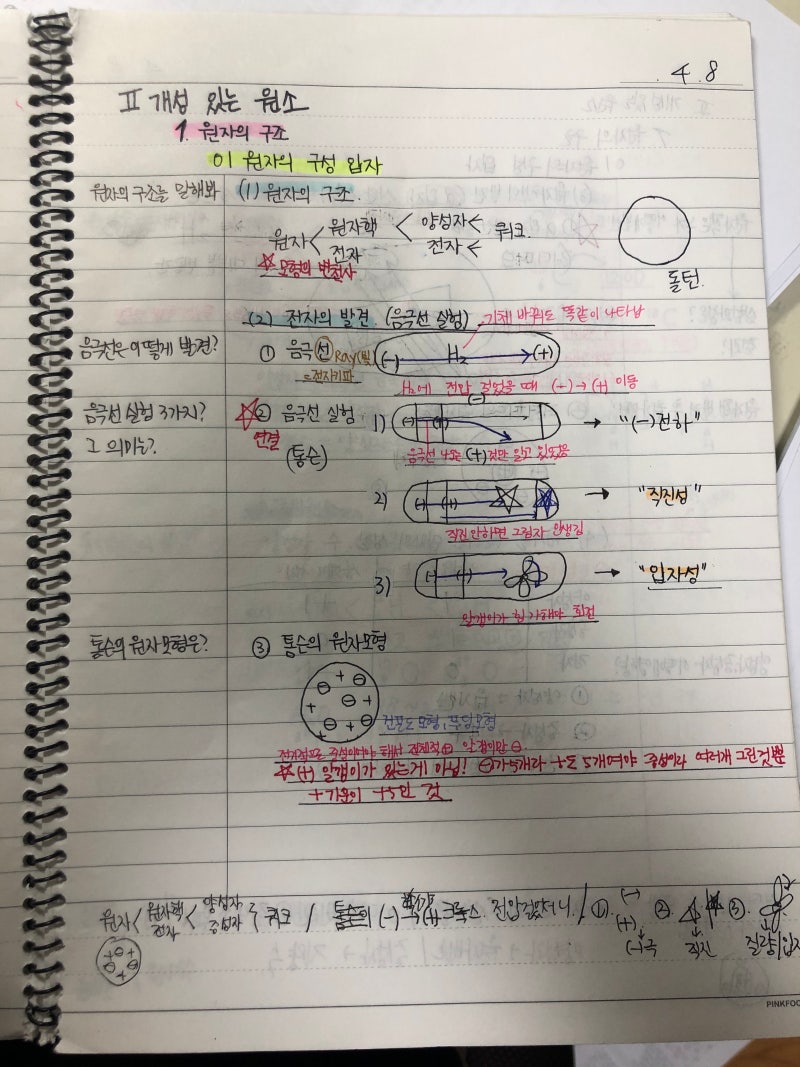 4. 8
II 개성 있는 원소
1. 원자의 구조
01 원자의 구성 입자
원자의 구조를 말해봐
(1) 원자의 구조.
원자 < 원자핵 < 양성자 < 쿼크.
전자 전자 <
☆ 모형의 변천사
돌턴.
(2) 전자의 발견 (음극선 실험)
기체 바꿔도 똑같이 나타남
음극선은 어떻게 발견?
① 음극선 Ray(빛)
(-) H₂ (+)
H₂에 전압 걸었을 때 (-)→(+) 이동
음극선 실험 3가지?
그 의미는?
☆② 음극선 실험
연결
(톰슨)
1) (-) (+) (-) → "(-)전하"
2) (-) (+) → "직진성"
직진안하면 그림자 안생김
3) (-) (+) → "입자성"
알갱이가 힘 가해야 회전
톰슨의 원자모형은?
③ 톰슨의 원자모형
건포도 모형, 푸딩모형
☆(+) 알갱이가 있는게 아님! ⊖가 5개라 +도 5개여야 중성이라 여러개 그린것뿐
+기운이 +5인 것
원자 < 원자핵 < 양성자 } 쿼크 /
전자 중성자
톰슨의 (-) → (+) 크룩스. 전압걸었더니 / ①. (-) ② ③.
(+)
(-)극 직진 질량|입자
PINKFOO